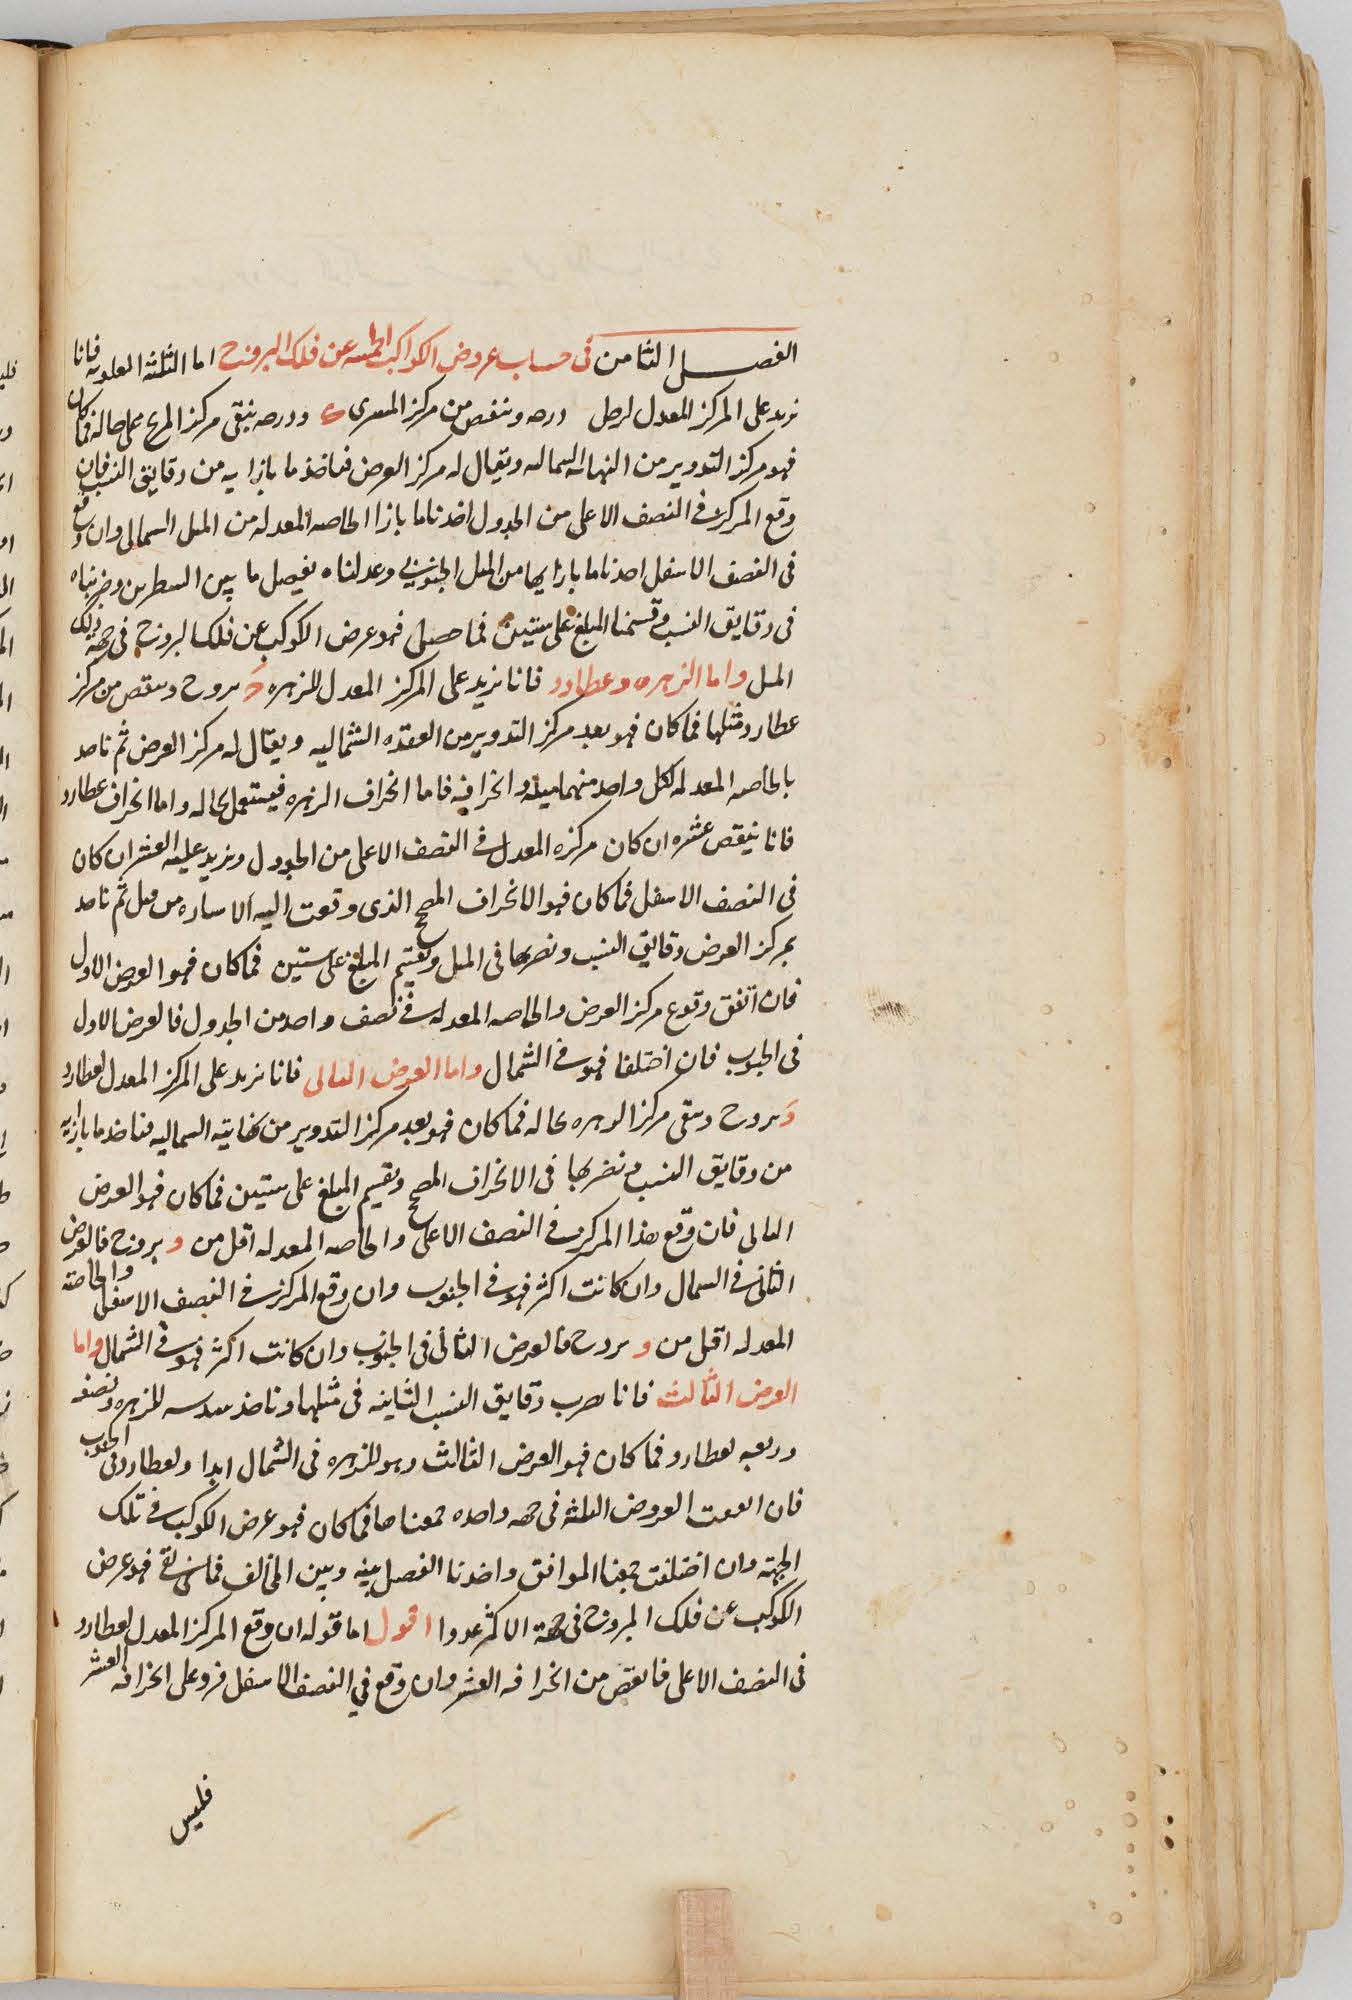 الفصل الثامن فى حساب عروض الكواكب الخمسه عن فلك البروج اما الثلثة العلويه فانا
نزيد على المركز المعدل لزحل درجه وننقص من مركز المشترى ى درجه نبقى مركز المريخ على حاله فما كان
فهو مركز التدوير من النهايه السماليه ويقال له مركز العرض فناخذ ما بازايه من دقايق النسب فان
وقع المركز فى النصف الاعلى من الجدول اخذنا ما بازا الخاصه المعدله من الميل السمالى وان وقع
فى النصف الاسفل اخذنا ما بازايها من الميل الجنوبي وعدلناه بفصل ما بين السطرين وضربناه
فى دقايق النسب وقسمنا المبلغ على ستين فما حصل فهو عرض الكوكب عن فلك البروج فى جهة ذلك
الميل واما الزهره وعطارد فانا نزيد على المركز المعدل للزهره ج بروج وننقص من مركز
عطارد مثلها فما كان فهو بعد مركز التدوير من العقده الشماليه ويقال له مركز العرض ثم ناخذ
بالخاصه المعدله لكل واحد منهما ميله وانحرافه فاما انحراف الزهره فيستعمل بحاله واما انحراف عطارد
فانا ننقص عشره ان كان مركزه المعدل فى النصف الاعلى من الجدول ونزيد عليه العشر ان كان
فى النصف الاسفل فما كان فهو الانحراف المصحح الذى وقعت اليه الاساره من قبل ثم ناخذ
بمركز العرض دقايق النسب ونضربها فى الميل ونقسم المبلغ على ستين فما كان فهو العرض الاول
فان اتفق وقوع مركز العرض والخاصه المعدله فى نصف واحد من الجدول فالعرض الاول
فى الجنوب فان اختلفا فهو فى الشمال واما العرض الثانى فانا نزيد على المركز المعدل لعطارد
و بروج ونبقى مركز الزهره بحاله فما كان فهو بعد مركز التدوير من نهايته السماليه فناخذ ما بازايه
من دقايق النسب ونضربها فى الانحراف المصحح ونقسم المبلغ على ستين فما كان فهو العرض
الثانى فان وقع هذا المركز فى النصف الاعلى والخاصه المعدله اقل من و بروج فالعرض
الثانى فى السمال وان كانت اكثر فهو فى الجنوب وان وقع المركز فى النصف الاسفل والخاصة
المعدله اقل من و بروج فالعرض الثانى فى الجنوب وان كانت اكثر فهو فى الشمال واما
العرض الثالث فانا نضرب دقايق النسب الثانيه فى مثلها وناخذ سدسه للزهره ونصفه
وربعه لعطارد فما كان فهو العرض الثالث وهو للزهره فى الشمال ابدا ولعطارد فى الجنوب
فان اتفقت العروض الثلثه فى جهه واحده جمعناها فما كان فهو عرض الكوكب فى تلك
الجهة وان اختلفت جمعنا الموافق واخذنا الفصل بينه وبين المخالف فما بقى فهو عرض
الكوكب عن فلك البروج فى جهة الاكثر عددا اقول اما قوله ان وقع المركز المعدل لعطارد
فى النصف الاعلى فانقص من انحرافه العشر وان وقع في النصف الاسفل فزد على انحرافه العشر
فليس